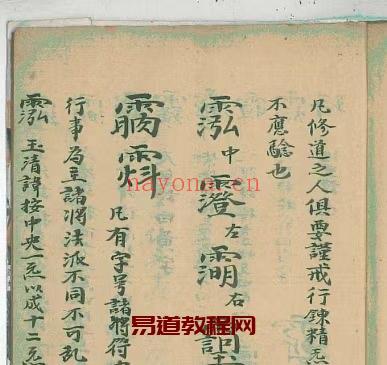 凡修道之人俱要謹戒行鍊精炁
不應騐也
霐中 左 右
凡有字号諸將符
行事為主諸將法派不同不可乱
霐 玉清諱按中央一炁以成十二炁
nayona.cn
易道教程网